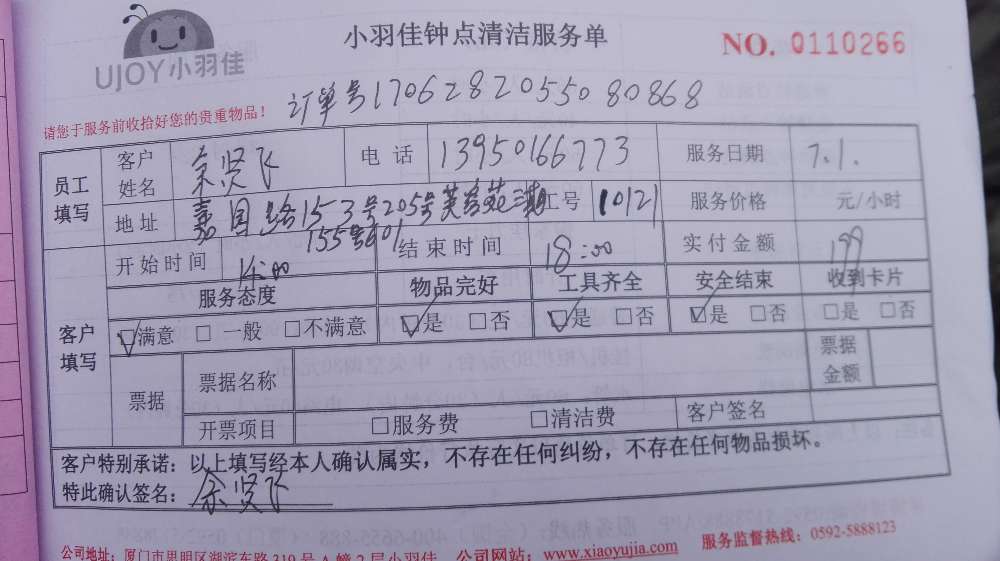 UJOY小羽佳
小羽佳钟点清洁服务单
NO. 0110266
订单号1706282055080868
请您于服务前收拾好您的贵重物品!
员工填写 客户姓名 余贤飞 电话 13950166773 服务日期 7.1.
地址 嘉园路153号205号芙蓉苑三期 工号 10121 服务价格 元/小时
155号601
客户填写 开始时间 14:00 结束时间 18:00 实付金额 199
服务态度 物品完好 工具齐全 安全结束 收到卡片
☑满意 □一般 □不满意 ☑是 □否 ☑是 □否 ☑是 □否 □是 □否
票据 票据名称 票据金额
开票项目 □服务费 □清洁费 客户签名
客户特别承诺:以上填写经本人确认属实,不存在任何纠纷,不存在任何物品损坏。
特此确认签名:余贤飞
公司地址:厦门市思明区湖滨东路319号A幢2层小羽佳 公司网站:www.xiaoyujia.com 服务监督热线:0592-5888123